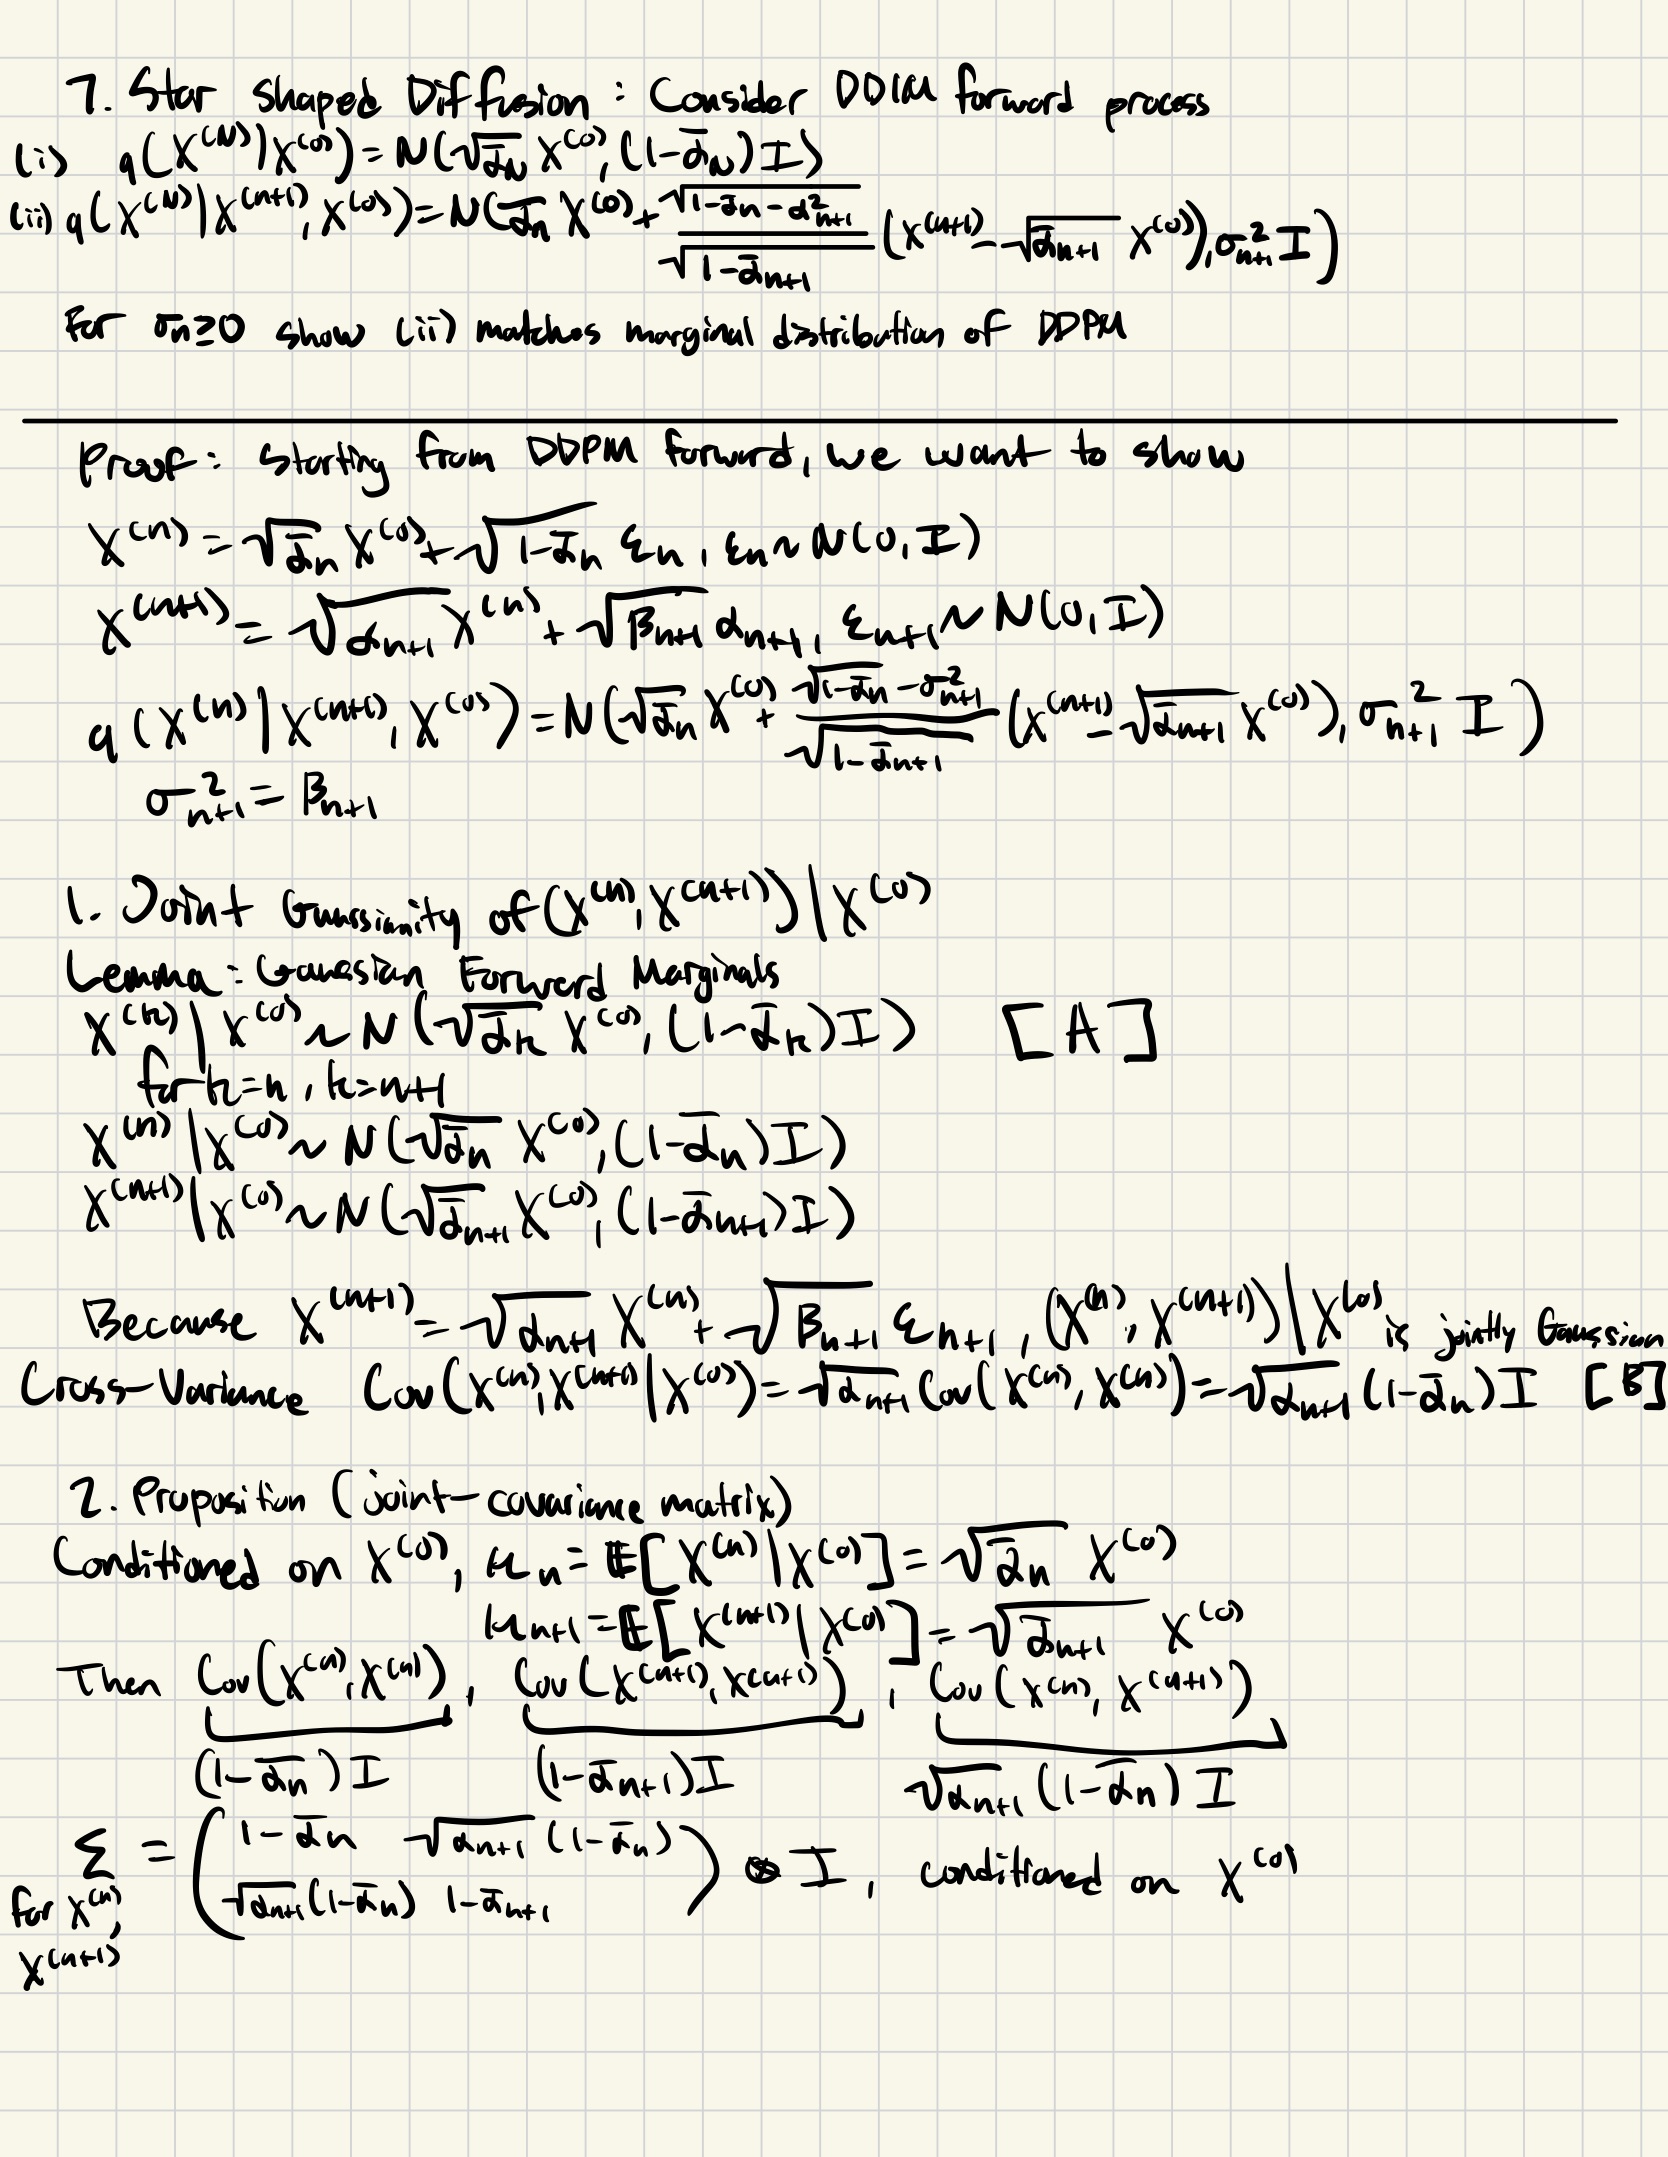 7. Star Shaped Diffusion : Consider DDIM forward process
(i) q(X^(N)|X^(0)) = N(√ᾱ_N X^(0), (1-ᾱ_N)I)
(ii) q(X^(N)|X^(n+1), X^(0)) = N(√ᾱ_n X^(0) + √(1-ᾱ_n-α²_{n+1}) / √(1-ᾱ_{n+1}) (X^(n+1) - √ᾱ_{n+1} X^(0)), σ²_{n+1} I)
For σ_n≥0 show (ii) matches marginal distribution of DDPM
Proof: Starting from DDPM forward, we want to show
X^(n) = √ᾱ_n X^(0) + √(1-ᾱ_n) ε_n, ε_n ~ N(0, I)
X^(n+1) = √α_{n+1} X^(n) + √β_{n+1} α_{n+1}, ε_{n+1} ~ N(0, I)
q(X^(n)|X^(n+1), X^(0)) = N(√ᾱ_n X^(0) + (√(1-ᾱ_n) - σ²_{n+1}) / √(1-ᾱ_{n+1}) (X^(n+1) - √ᾱ_{n+1} X^(0)), σ²_{n+1} I)
σ²_{n+1} = β_{n+1}
1. Joint Gaussianity of (X^(n), X^(n+1))|X^(0)
Lemma: Gaussian Forward Marginals
X^(k)|X^(0) ~ N(√ᾱ_k X^(0), (1-ᾱ_k)I) [A]
for k=n, k=n+1
X^(n)|X^(0) ~ N(√ᾱ_n X^(0), (1-ᾱ_n)I)
X^(n+1)|X^(0) ~ N(√ᾱ_{n+1} X^(0), (1-ᾱ_{n+1})I)
Because X^(n+1) = √α_{n+1} X^(n) + √β_{n+1} ε_{n+1}, (X^(n), X^(n+1))|X^(0) is jointly Gaussian
Cross-Variance Cov(X^(n), X^(n+1)|X^(0)) = √α_{n+1} Cov(X^(n), X^(n)) = √α_{n+1} (1-ᾱ_n)I [B]
2. Proposition (joint-covariance matrix)
Conditioned on X^(0), μ_n = E[X^(n)|X^(0)] = √ᾱ_n X^(0)
μ_{n+1} = E[X^(n+1)|X^(0)] = √ᾱ_{n+1} X^(0)
Then Cov(X^(n), X^(n)), Cov(X^(n+1), X^(n+1)), Cov(X^(n), X^(n+1))
(1-ᾱ_n)I (1-ᾱ_{n+1})I √α_{n+1} (1-ᾱ_n) I
Σ = ( 1-ᾱ_n √α_{n+1} (1-ᾱ_n) ) ⊗ I, conditioned on X^(0)
for X^(n), √α_{n+1}(1-ᾱ_n) 1-ᾱ_{n+1}
X^(n+1)